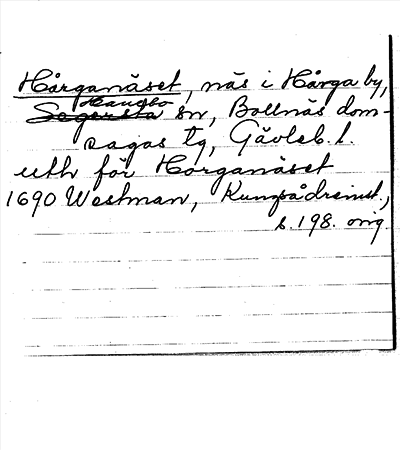 Hårganäset, näs i Hårga by,
Hanebo
Segersta sn, Bollnäs dom-
sagas tg, Gävleb. l.
uth för Hårganäset
1690 Westman, Kungsådreinst.,
s. 198. orig.